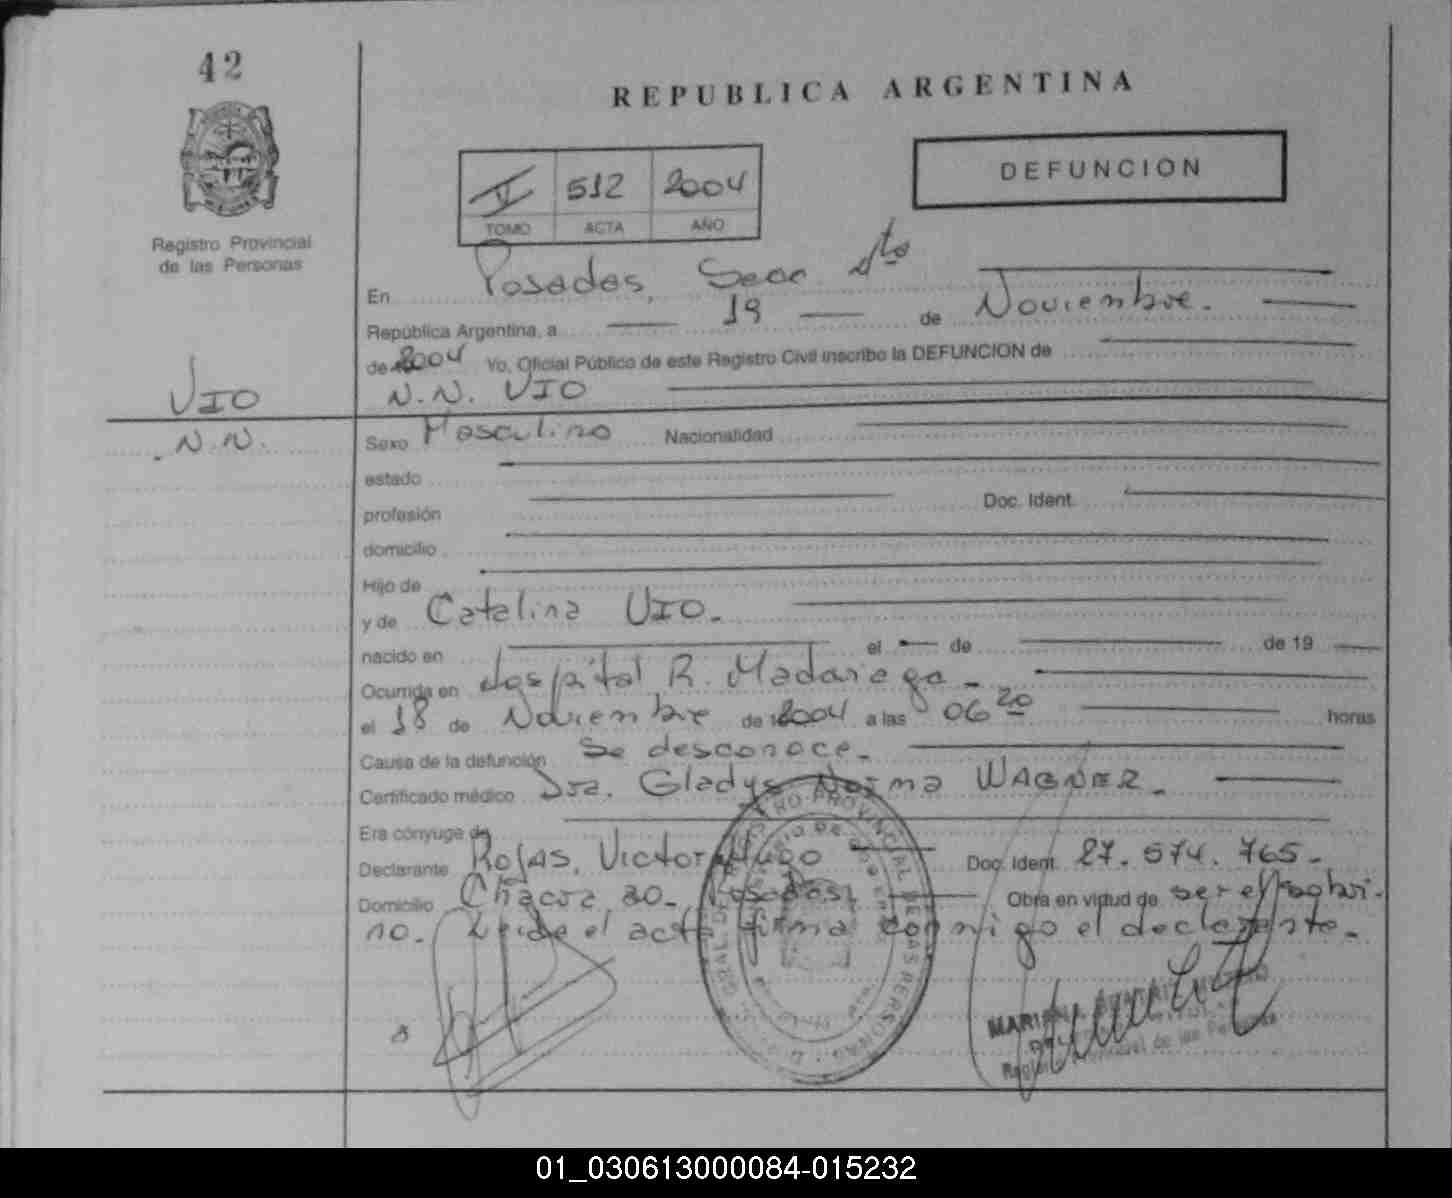 42
REPUBLICA ARGENTINA
DEFUNCION
II 512 2004
TOMO ACTA AÑO
Registro Provincial
de las Personas
En Posadas, Secc 4to
República Argentina, a 19 de Noviembre.
de 2004 Yo, Oficial Público de este Registro Civil inscribo la DEFUNCION de
N.N. VIO
VIO
N.N.
Sexo Masculino Nacionalidad
estado
profesión Doc. Ident.
domicilio
Hijo de
y de Catalina VIO.
nacido en el de de 19
Ocurrida en Hospital R. Madariaga.
el 18 de Noviembre de 2004 a las 06 20 horas
Causa de la defunción Se desconoce.
Certificado médico Dra. Gladys Norma WAGNER.
Era cónyuge de
Declarante Rojas, Victor Hugo Doc. Ident. 27.574.765.
Domicilio Chacra 30. Posadas, Obra en virtud de ser
no. Leida el acta firma conmigo el declarante.
REGISTRO PROVINCIAL DE LAS PERSONAS
Provincial de las Personas
01_030613000084-015232